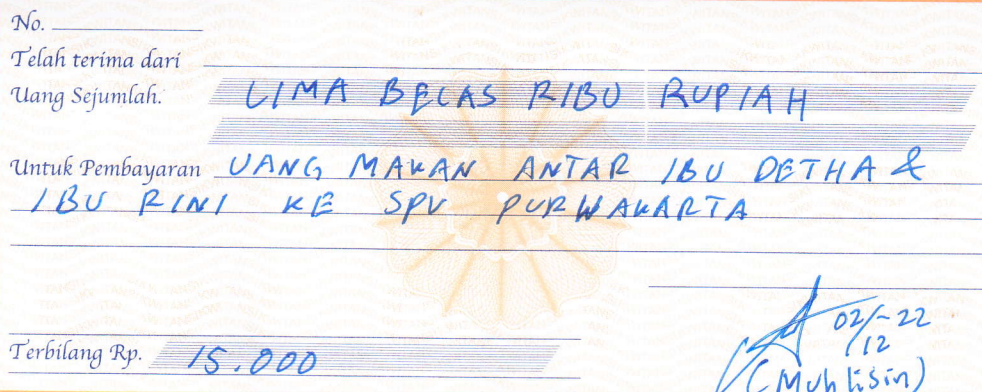 No.
Telah terima dari
Uang Sejumlah. LIMA BELAS RIBU RUPIAH
Untuk Pembayaran UANG MAKAN ANTAR IBU DETHA &
IBU RINI KE SPV PURWAKARTA
02/-22
/12
Terbilang Rp. 15.000
(Muhlisin)